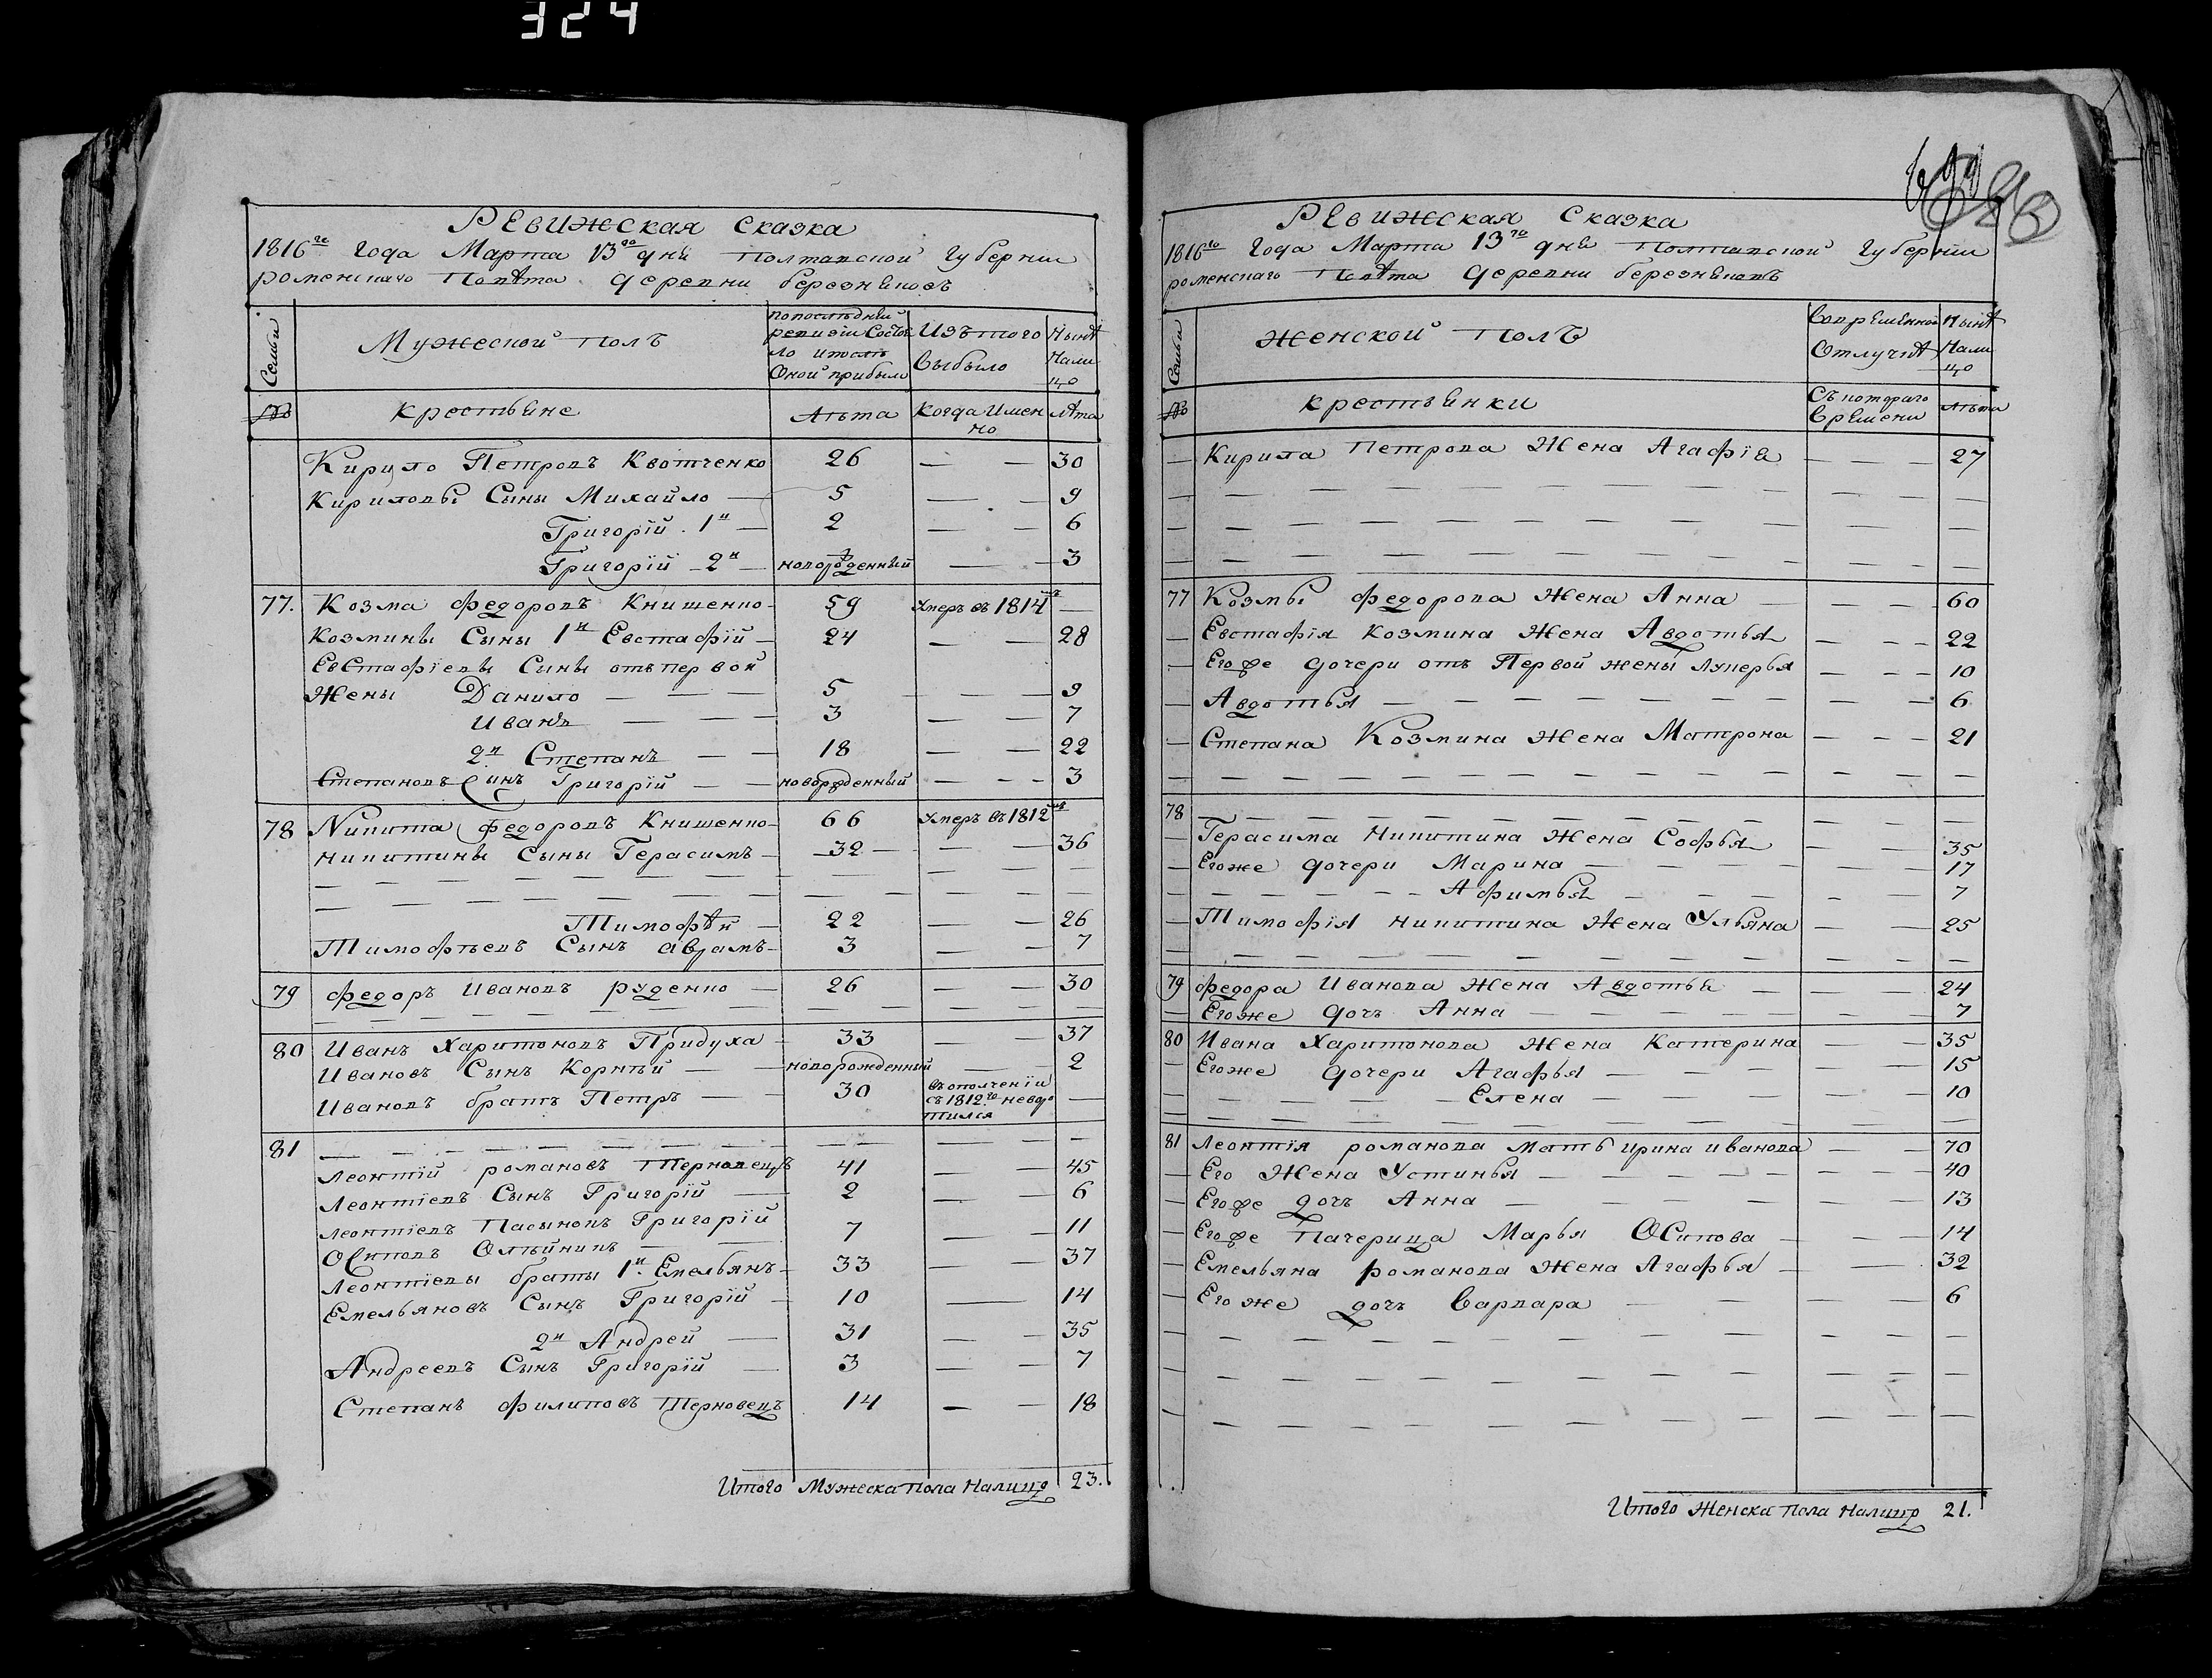 324
РЕВИЖСКАЯ СКАЗКА
1816го Года Марта 13го дня Полтавской Губернии
роменскаго Повѣта деревни березняковъ
Семьи
Мужеской полъ
попослѣдней ревизіи Состоя
ло ипослѣ Оной прибыло
Изъ того Выбыло
Нынѣ Нали
цо
№
крестьяне
Лѣта
Когда Имен
но
лѣта
Кирило Петровъ Квотченко 26 — — 30
Кириловы Сыны Михайло — 5 — — 9
Григорій 1й — 2 — — 6
Григорій 2й — новорожденный — — 3
77. Козма федоровъ Книшенко 59 Умеръ въ 1814мъ —
Козмины Сыны 1й Евстафій — 24 — — 28
Евстафіевы Сыны отъ первой
Жены Данило — — — 5 — — 9
Иванъ — — — 3 — — 7
2й Степанъ — — 18 — — 22
Степановъ Сынъ Григорій — — новорожденный — — — 3
78 Никита федоровъ Книшенко 66 Умеръ въ 1812мъ
Никитины Сыны Герасимъ — 32 — — — 36
Тимофѣй — 22 — — 26
Тимофѣевъ Сынъ аврамъ — 3 — — 7
79 федоръ Ивановъ руденко — 26 — — 30
80 Иванъ Харитоновъ Придуха — 33 — — 37
Ивановъ Сынъ Корнѣй — — новорожденный — — 2
Ивановъ братъ Петръ — — 30 въополченіи
съ1812го неворо
тился —
81 — — — — — — —
Леонтій романовъ Терновецъ 41 — — 45
Леонтіевъ Сынъ Григорій — 2 — — 6
Леонтіевъ Пасынокъ Григорій
Осиповъ Олѣйникъ — — 7 — — 11
Леонтіевы браты 1й Емельянъ — 33 — — 37
Емельяновъ Сынъ Григорій — 10 — 14
2й Андрей — 31 — — 35
Андреевъ Сынъ Григорій — 3 — — 7
Степанъ филиповъ Терновецъ 14 — — 18
Итого Мужеска пола Налицо 23.
РЕВИЖСКАЯ СКАЗКА
1816го Года Марта 13го дня Полтавской Губерніи
роменскаго Повѣта деревни березняковъ
Семьи
Женской Полъ
Вовременной
Отлучкѣ
Нынѣ
Нали
цо
№
крестьянки
Съ котораго
времени
лѣта
Кирила Петрова Жена Агафія — — — 27
77 Козмы федорова Жена Анна — — — 60
Евстафія Козмина Жена Авдотья — — — 22
Егоже дочери отъ Первой жены Лукерья — — — 10
Авдотья — — — 6
Степана Козмина Жена Матрона — — — 21
78 — — — — — — —
Герасима Никитина Жена Софья — — 35
Егоже дочери Марина — — — 17
Афимья — — — 7
Тимофія никитина Жена Ульяна — — 25
79 федора Иванова Жена Авдотья — — — 24
Егоже дочь Анна — — — 7
80 Ивана Харитонова Жена Катерина — — 35
Егоже дочери Агафья — — — 15
Елена — — — 10
81 Леонтія романова мать ирина иванова — — 70
Его Жена Устинья — — — 40
Егоже дочь Анна — — — 13
Егоже Пачерица Марья Осипова — — 14
Емельяна романова Жена Агафья — — 32
Егоже дочь Варвара — — — 6
Итого Женска пола Налицо 21.